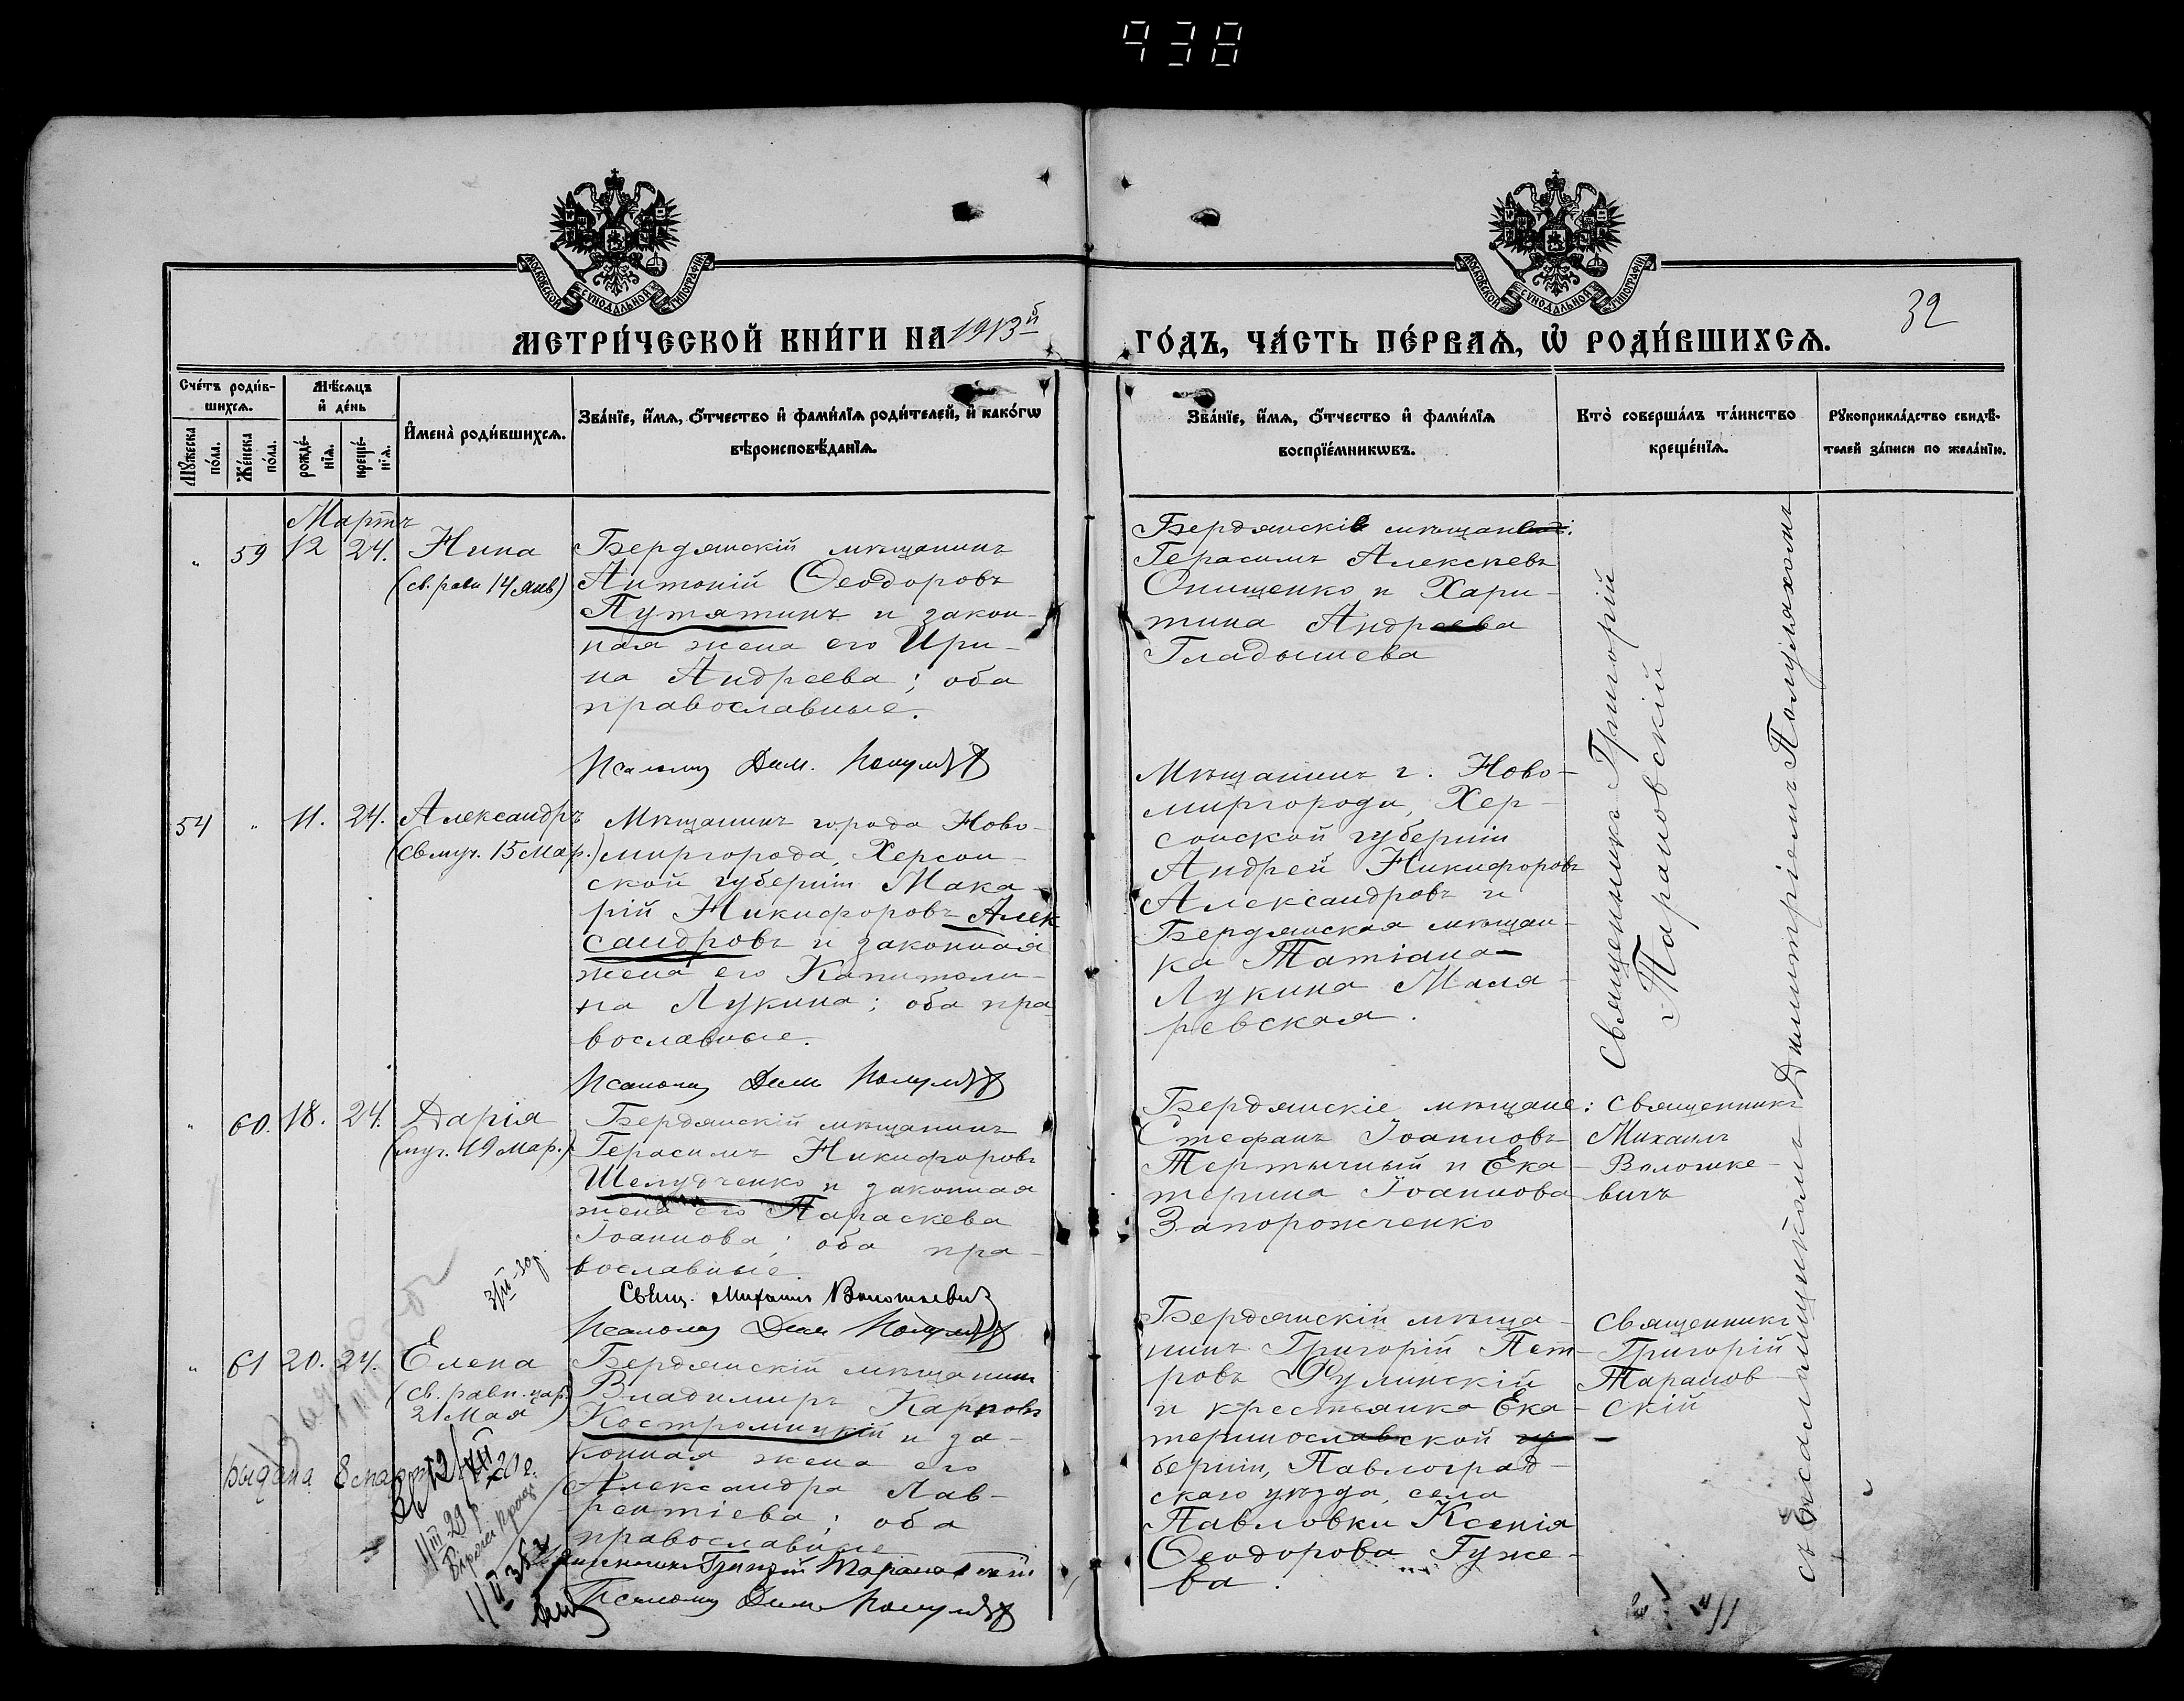 938
МОСКОВСКОЙ СУНОДАЛЬНОЙ ТИПОГРАФІИ
МОСКОВСКОЙ СУНОДАЛЬНОЙ ТИПОГРАФІИ
МЕТРИ́ЧЕСКОЙ КНИ́ГИ НА 1913й
ГО́ДЪ, ЧА́СТЬ ПЕ́РВАѦ, Ѡ҆ РОДИ́ВШИХСѦ.
32
Сче́тъ роди́в-
шихсѧ.
Мꙋ́жеска по́ла.
Же́нска по́ла.
Мѣ́сѧцъ
и҆ де́нь
рожде́-
нїѧ.
креще́-
нїѧ.
И҆мена̀ роди́вшихсѧ.
Зва́нїе, и҆́мѧ, ѻ҆́тчество и҆ фами́лїѧ роди́телей, и҆ како́гѡ
вѣроисповѣ́данїѧ.
Зва́нїе, и҆́мѧ, ѻ҆́тчество и҆ фами́лїѧ
воспрїе́мникѡвъ.
Кто̀ соверша́лъ та́инство
креще́нїѧ.
Рꙋкоприкла́дство свидѣ́-
телей за́писи по жела́нїю.
Мартъ
" 59 12 24. Нина
(св. равн 14 янв)
Бердянскій мѣщанинъ
Антоній Ѳеодоровъ
Путятинъ и закон-
ная жена его Ири-
на Андреева; оба
православные.
Псаломщ Дим.
Герасимъ Алексѣевъ
Онищенко и Хари-
тина Андреева
Гладышева
Священникъ Григорій
Тарановскій
54 " 11. 24. Александръ
(св муч. 15 Мар.)
Мѣщанинъ города Ново-
миргорода, Херсон-
ской губерніи Мака-
рій Никифоровъ Алек
сандровъ и законная
жена его Капитоли-
на Лукина; оба пра
вославные.
Псаломщ Дим
Мѣщанинъ г. Ново-
миргорода, Хер-
сонской губерніи
Андрей Никифоровъ
Александровъ и
Бердянская мѣщан-
ка Татіана
Лукина Маля-
ревская.
" 60. 18. 24. Дарія
(муч. 19 Мар.)
Бердянскій мѣщанинъ
Герасимъ Никифоровъ
Шелудченко и законная
жена его Параскева
Іоаннова; оба пра-
вославные.
Свящ. Михаилъ
Псаломщ Дим
Бердянскіе мѣщане:
Стефанъ Іоанновъ
Тертычный и Ека-
терина Іоаннова
Запорожченко
Священникъ
Михаилъ
Волошке-
вичъ
" 61 20. 24. Елена
(св. равн. цар.
21 Мая)
Бердянскій мѣщанинъ
Владимиръ Карповъ
Костромицкій и за-
конная жена его
Александра Лав-
рентіева; оба
православные
Григорій Тарановскій
Псаломщ Дим
Бердянскій мѣща-
нинъ Григорій Пет-
ровъ Фулинскій
и крестьянка Ека-
теринославской гу-
берніи, Павлоград-
скаго уѣзда, села
Павловки Ксенія
Ѳеодорова Гуже-
ва.
Священникъ
Григорій
Таранов-
скій
съ псаломщикомъ Димитріемъ
выдана 8 март